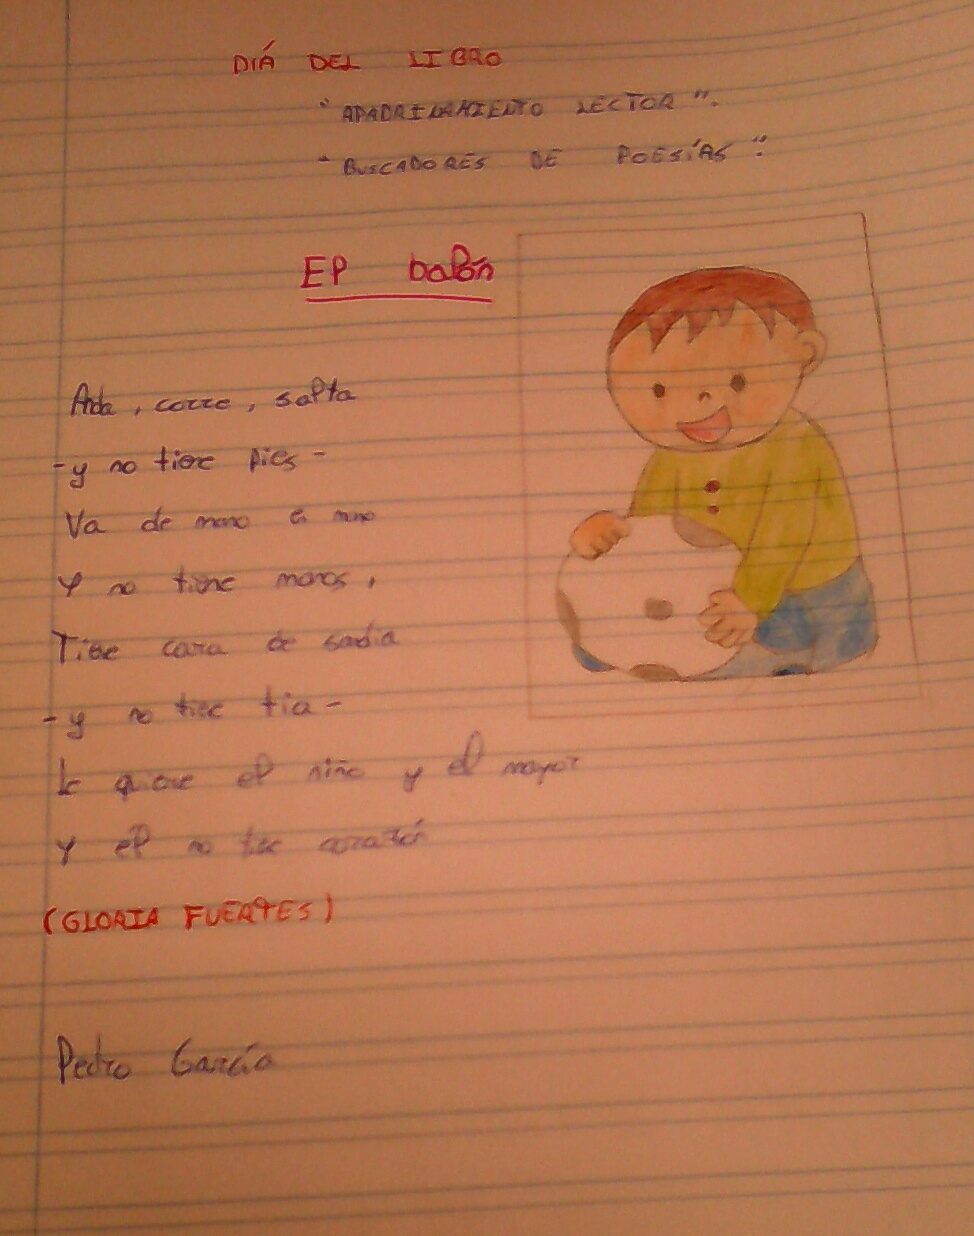 DÍA DEL LIBRO
"APADRINAMIENTO LECTOR".
"BUSCADORES DE POESÍAS".
El balón
Anda, corre, salta
-y no tiene pies-
Va de mano en mano
Y no tiene manos,
Tiene cara de sandía
-y no tiene tía-
le quiere el niño y el mayor
Y él no tiene corazón
(GLORIA FUERTES)
Pedro García